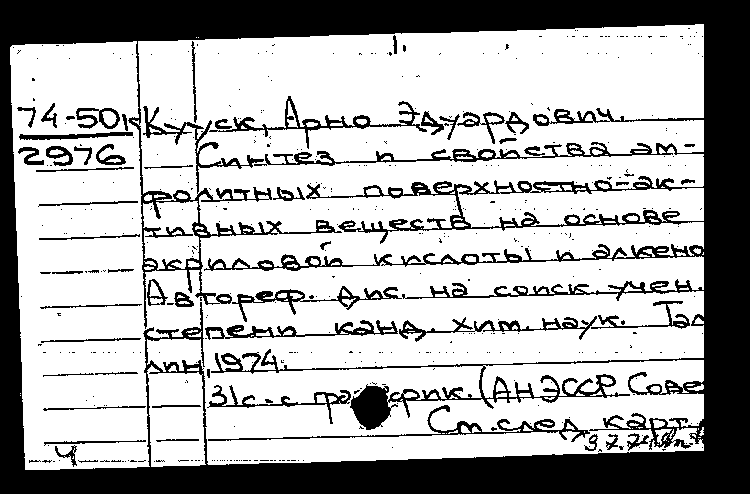 1.
74-50 Кууск, Арно Эдуардович.
2976 Синтез и свойства ам-
фолитных поверхностно-ак-
тивных веществ на основе
акриловой кислоты и алкено
Автореф. дис. на соиск. учен.
степени канд. хим. наук. Тал
лин, 1974.
31с. с график. (АН ЭССР. Сове
См. след. карт.
4